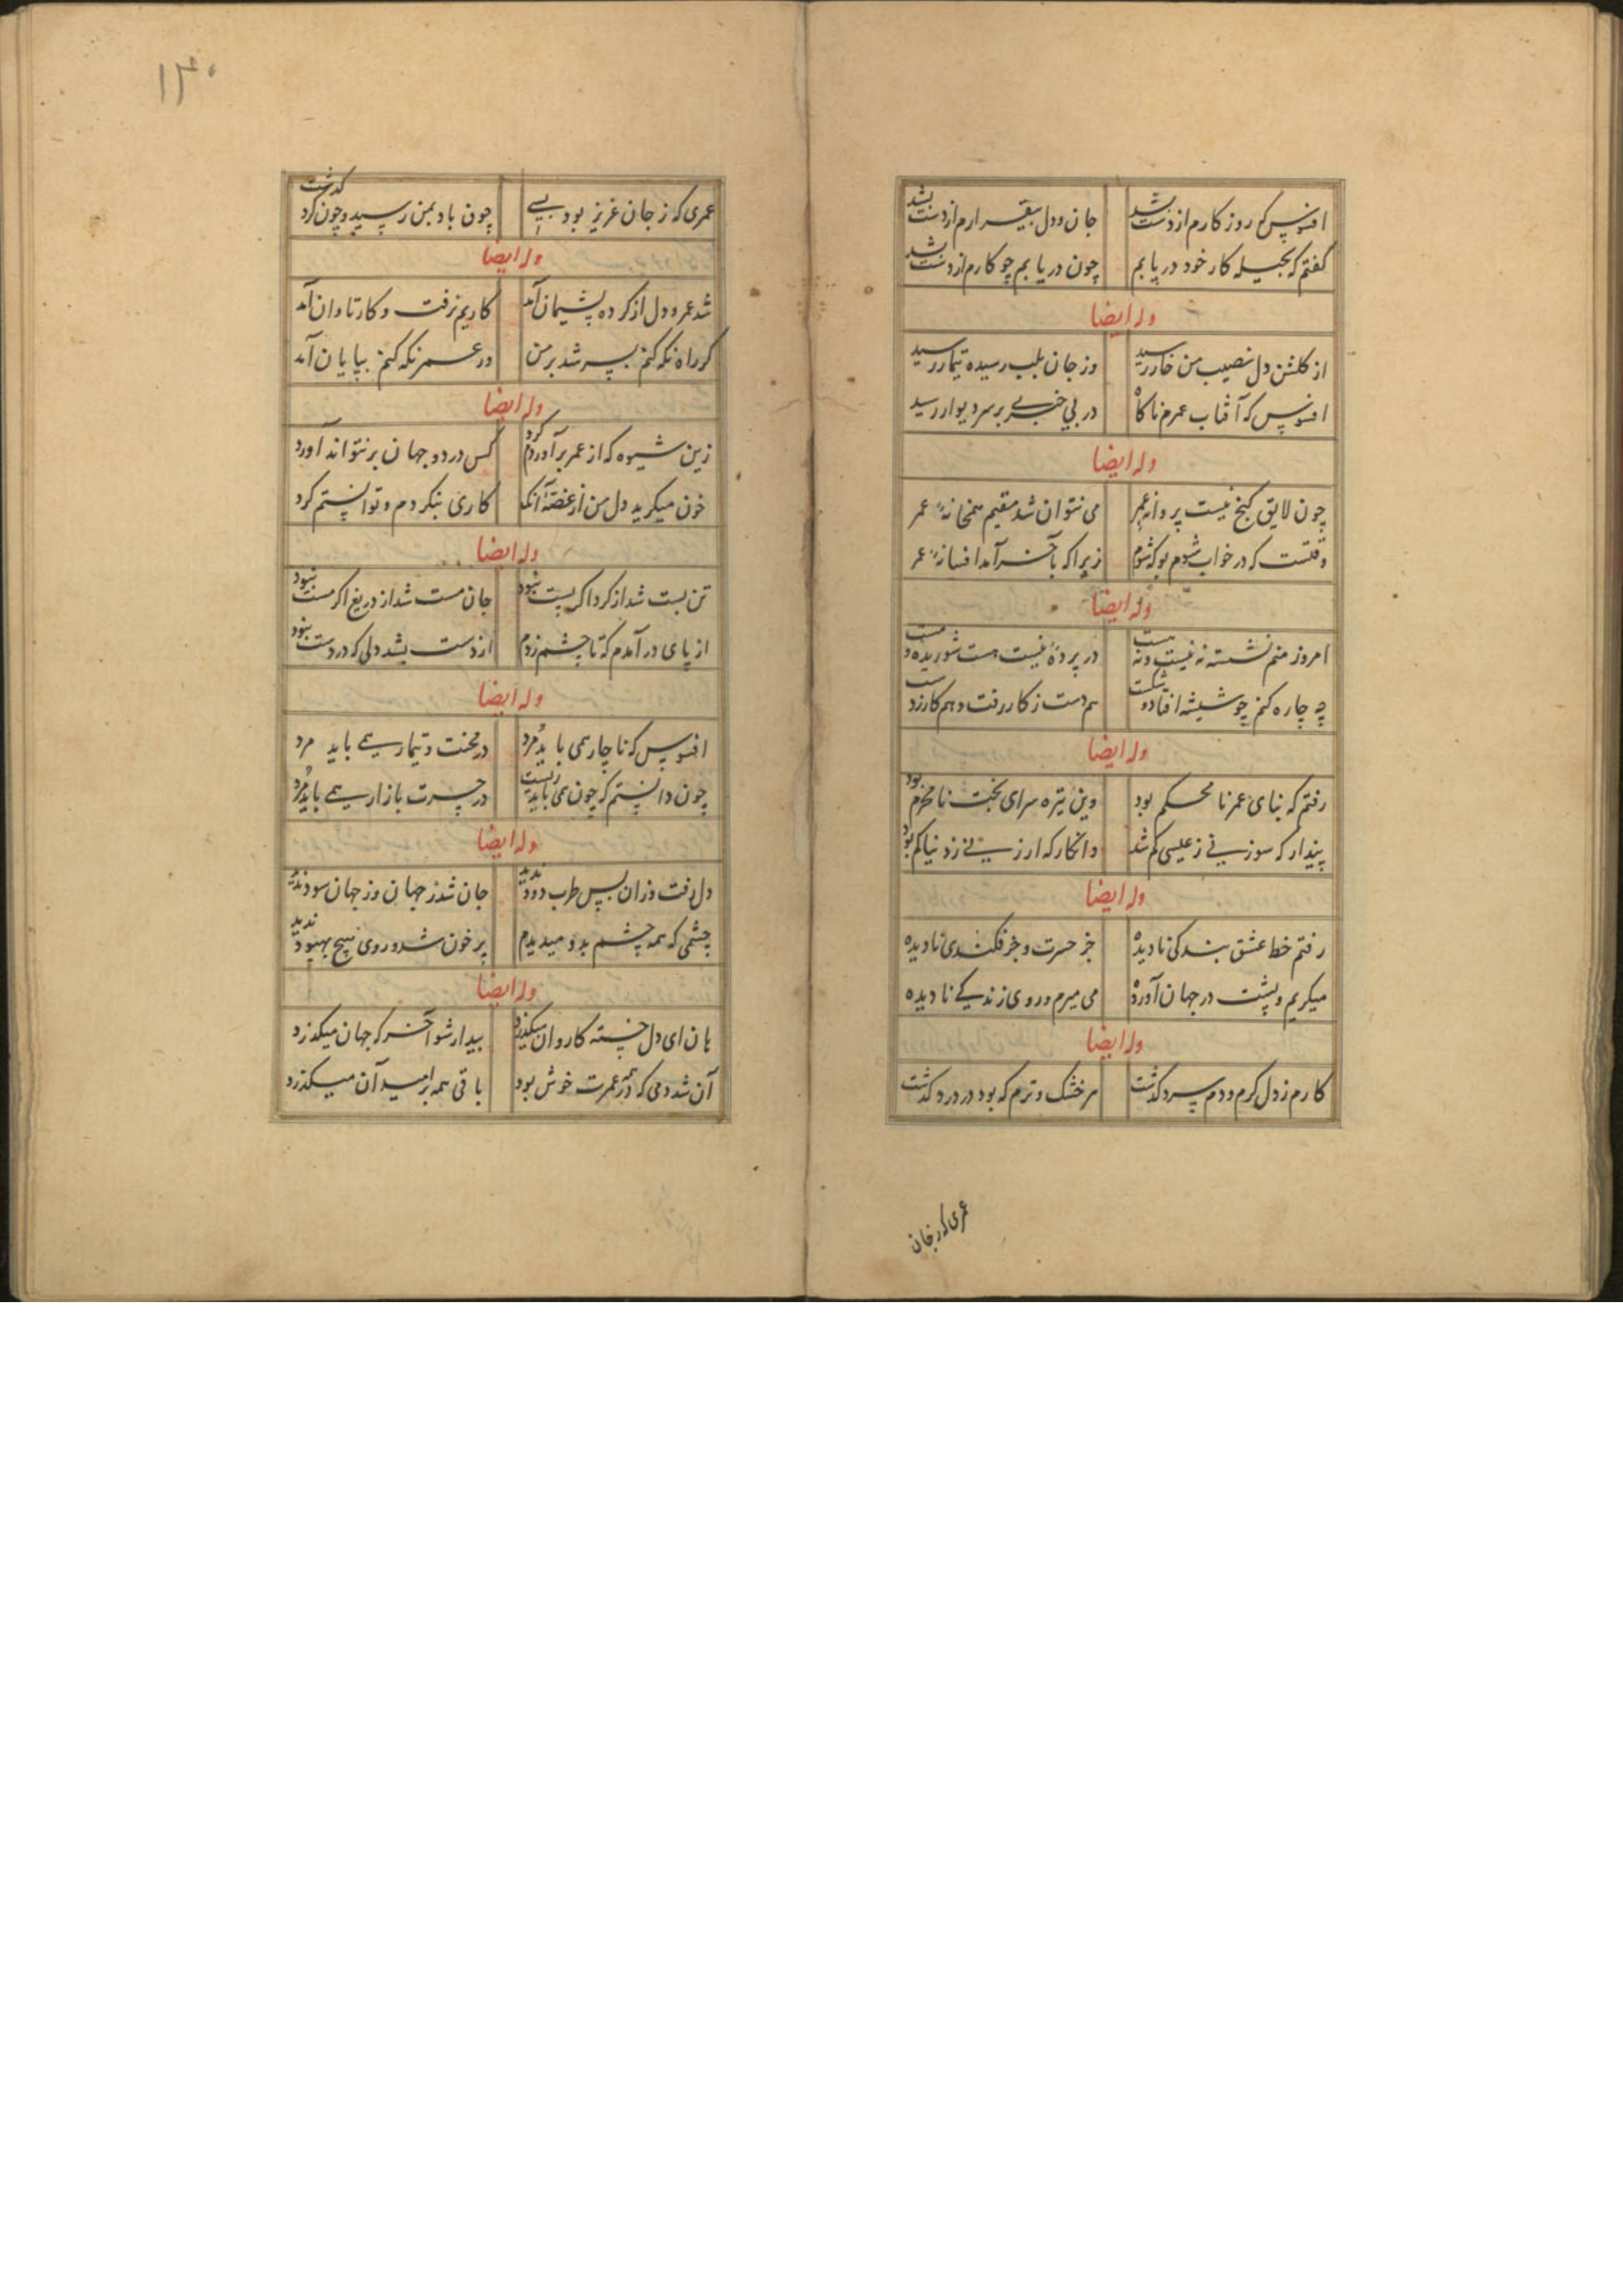 افسوس که روز کارم از دست بشد جان و دل بیقرارم از دست بشد
گفتم که بحیله کار خود دریابم چون دریابم چو کارم از دست بشد
وله ایضا
از گلشن دل نصیب من خار رسید وز جان بلب رسیده تیمار رسید
افسوس که آفتاب عمرم ناکاه در بی خبری بر سر دیوار رسید
وله ایضا
چون لایق گنج نیست پروانه عمر می نتوان شد مقیم همخانهٔ عمر
وقتست که در خواب شوم بو که شوم زیرا که بآخر آمد افسانهٔ عمر
وله ایضا
امروز منم نشسته نه نیست و نه هست در پردهٔ نیست هست شوریده و مست
چه چاره کنم چو شیشه افتاد و شکست هم دست ز کار رفت و هم کار ز دست
وله ایضا
رفتم که بنای عمر نا محکم بود وین تیره سرای بخت نا محرم بود
پندار که سوزنی ز عیسی کم شد وانکار که ارزنی ز دنیا کم بود
وله ایضا
رفتم خط عشق بندکی نادیده جز حسرت و جز فکندی نادیده
میکریم و پشت در جهان آورده می میرم و روی زندکی نادیده
وله ایضا
کارم ز دل کرم و دم سرد کذشت هر خشک و ترم که بود در درد کذشت
عمری که ز جان
۱۳۰
عمری که ز جان عزیز بود بسی چون باد بمن رسید و چون کرد کذشت
وله ایضا
شد عمر و دل از کرده پشیمان آمد کاریم نرفت و کار تاوان آمد
کر راه نکه کنم بسر شد بر من ور عمر نکه کنم بپایان آمد
وله ایضا
زین شیوه که از عمر برآوردم کرد کس در دو جهان بر نتواند آورد
خون میکرید دل من از غصهٔ آنک کاری بنکردم و توانستم کرد
وله ایضا
تن پست شد از کرد اکر پست نبود جان مست شد از دریغ اکر مست نبود
از پای در آمدم که تا چشم زدم از دست بشد دلی که در دست نبود
وله ایضا
افسوس که ناچار همی باید مرد در محنت و تیمار همی باید مرد
چون دانستم که چون همی باید زیست در حسرت بازار همی باید مرد
وله ایضا
دل رفت وزان پس طرب و دود ندید جان شد ز جهان وز جهان سود ندید
چشمی که همه چشم بدو میدیدم پر خون شد و روی هیچ بهبود ندید
وله ایضا
هان ای دل خسته کاروان میکذرد بیدار شو آخر که جهان میکذرد
آن شد دمی که در همه عمرت خوش بود باقی همه بر امید آن میکذرد